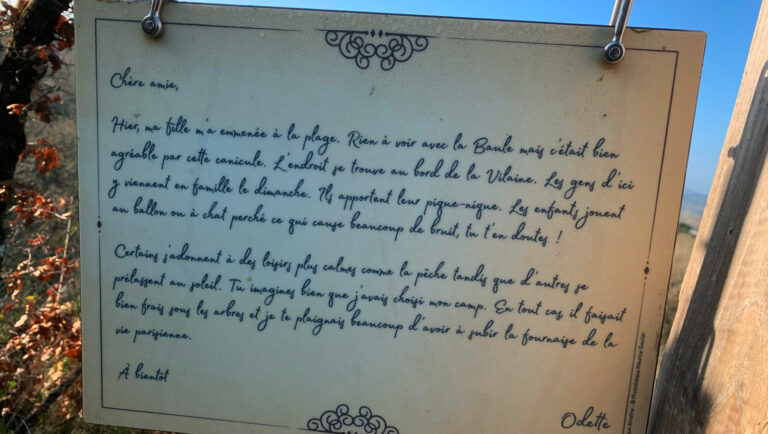 Chère amie,
Hier, ma fille m'a emmenée à la plage. Rien à voir avec la Baule mais c'était bien
agréable par cette canicule. L'endroit se trouve au bord de la Vilaine. Les gens d'ici
y viennent en famille le dimanche. Ils apportent leur pique-nique. Les enfants jouent
au ballon ou à chat perché ce qui cause beaucoup de bruit, tu t'en doutes !
Certains s'adonnent à des loisirs plus calmes comme la pêche tandis que d'autres se
prélassent au soleil. Tu imagines bien que j'avais choisi mon camp. En tout cas il faisait
bien frais sous les arbres et je te plaignais beaucoup d'avoir à subir la fournaise de la
vie parisienne.
À bientôt
Odette